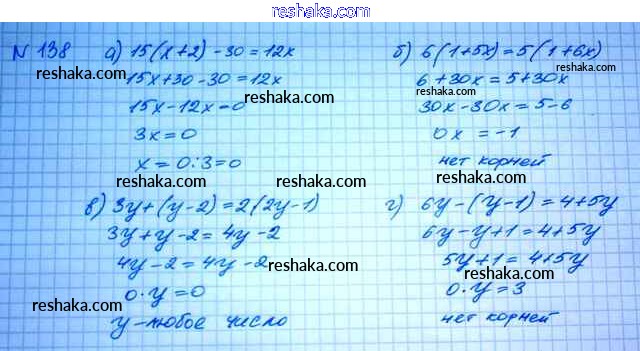 reshaka.com
N 138 а) 15(x+2)-30=12x
15x+30-30=12x
15x-12x=0
3x=0
x=0:3=0
б) 6(1+5x)=5(1+6x)
6+30x=5+30x
30x-30x=5-6
0x=-1
нет корней
в) 3y+(y-2)=2(2y-1)
3y+y-2=4y-2
4y-2=4y-2
0·y=0
y-любое число
г) 6y-(y-1)=4+5y
6y-y+1=4+5y
5y+1=4+5y
0·y=3
нет корней
reshaka.com
reshaka.com
reshaka.com
reshaka.com
reshaka.com
reshaka.com
reshaka.com
reshaka.com
reshaka.com
reshaka.com
reshaka.com
reshaka.com